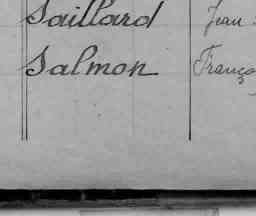 Saillard Jean
Salmon Franço